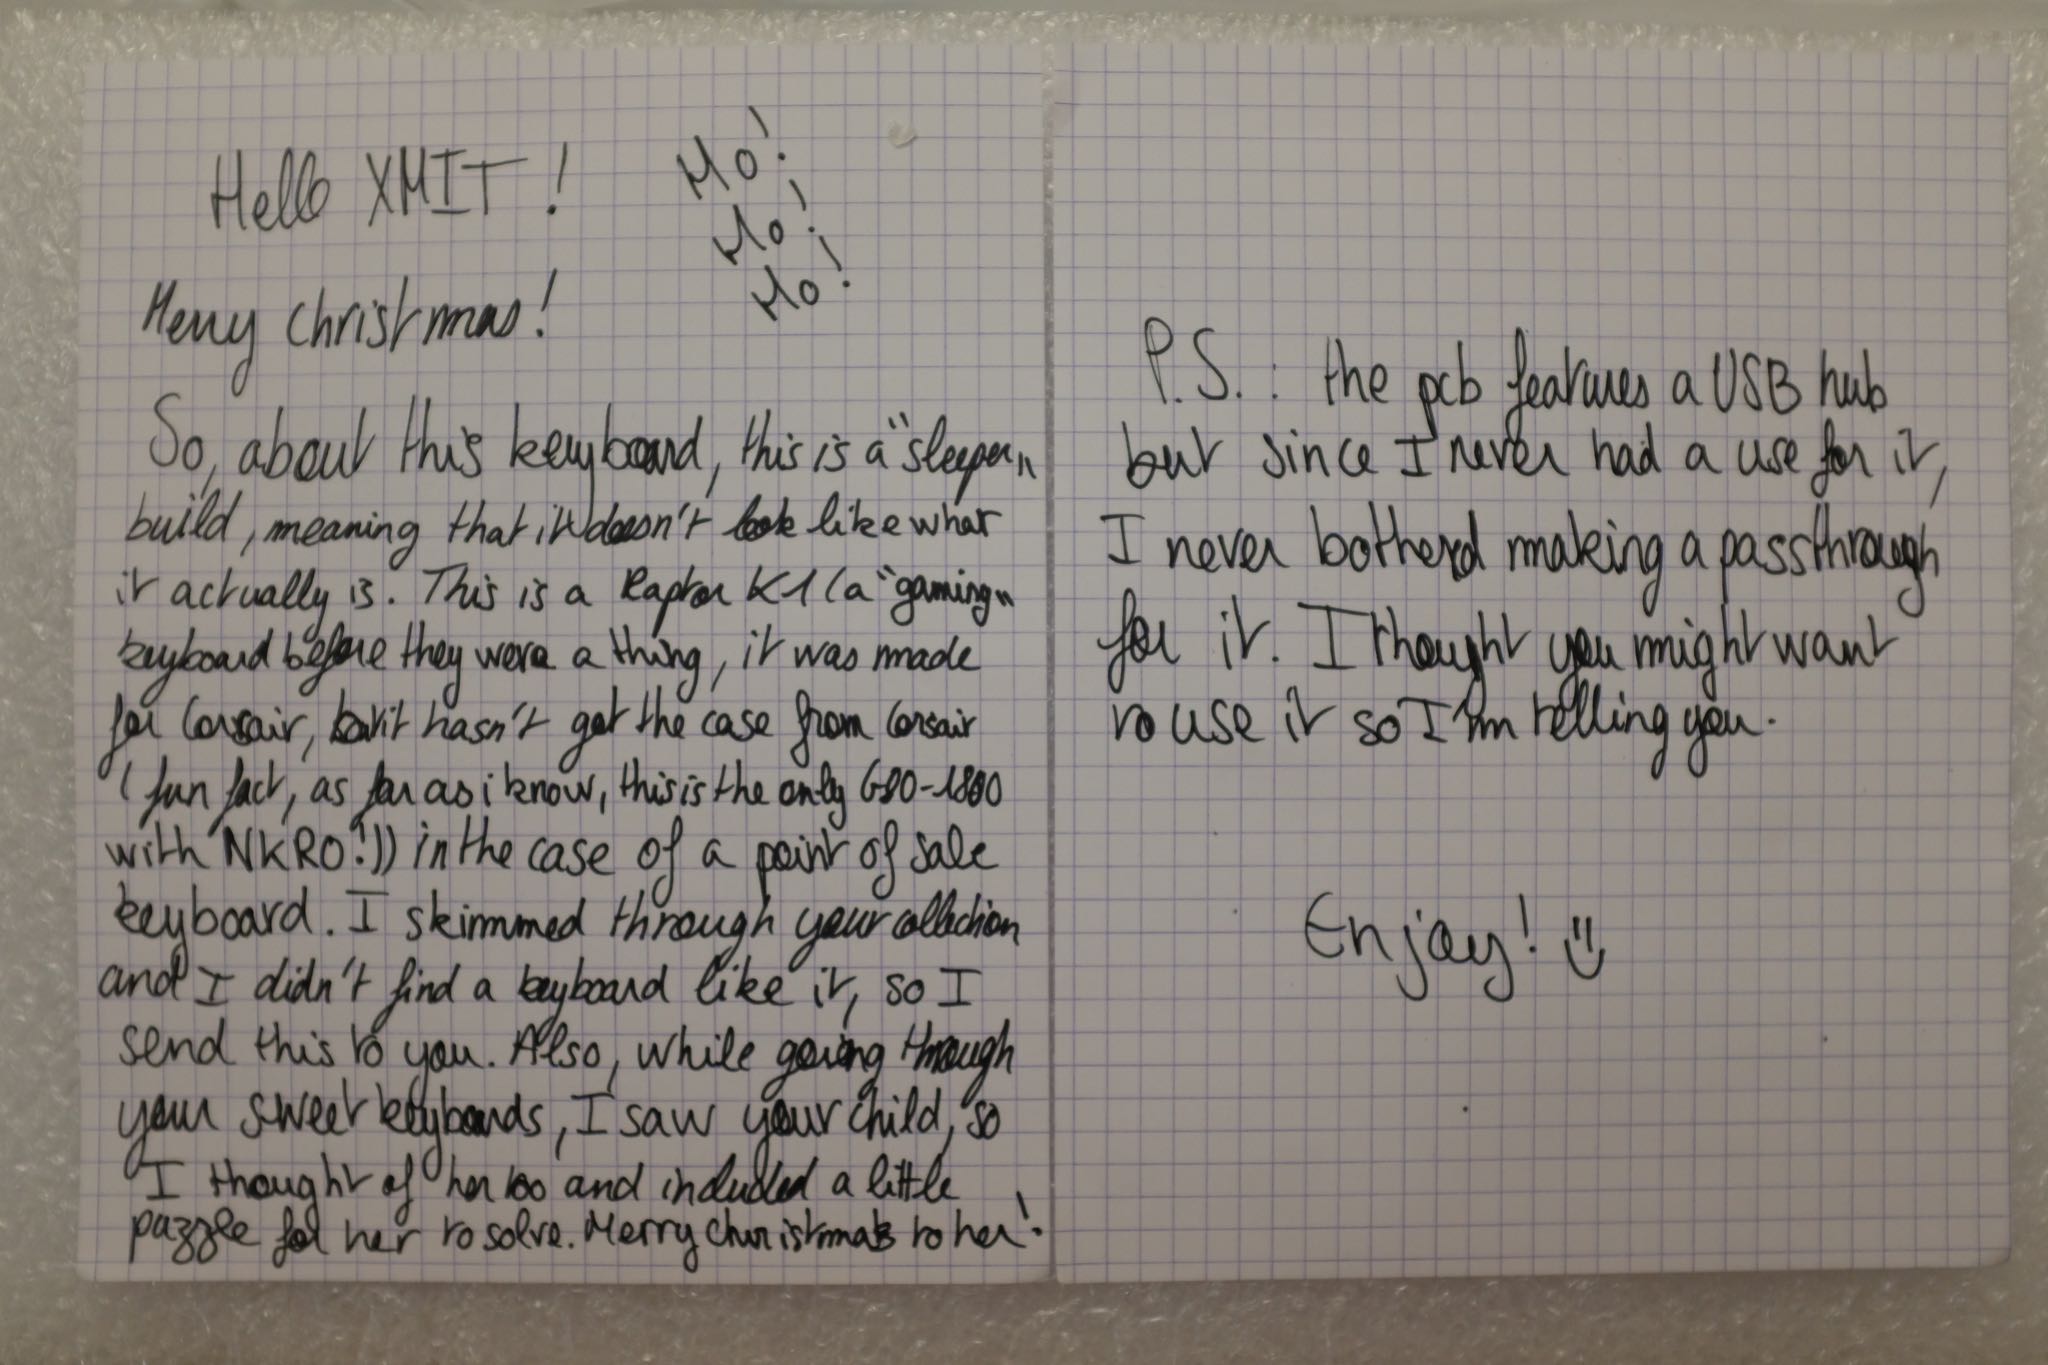 Hello XMIT !
Ho!
Ho!
Ho!
Merry christmas!
So, about this keyboard, this is a "sleeper"
build, meaning that it doesn't look like what
it actually is. This is a Raptor K1 (a "gaming"
keyboard before they were a thing, it was made
for Corsair, but it hasn't got the case from Corsair
(fun fact, as far as i know, this is the only G80-1800
with NKRO!)) in the case of a point of sale
keyboard. I skimmed through your collection
and I didn't find a keyboard like it, so I
send this to you. Also, while going through
your sweet keyboards, I saw your child, so
I thought of her too and included a little
puzzle for her to solve. Merry Christmas to her!
P.S. : the pcb features a USB hub
but since I never had a use for it,
I never botherd making a passthrough
for it. I thought you might want
to use it so I'm telling you.
Enjoy! :)